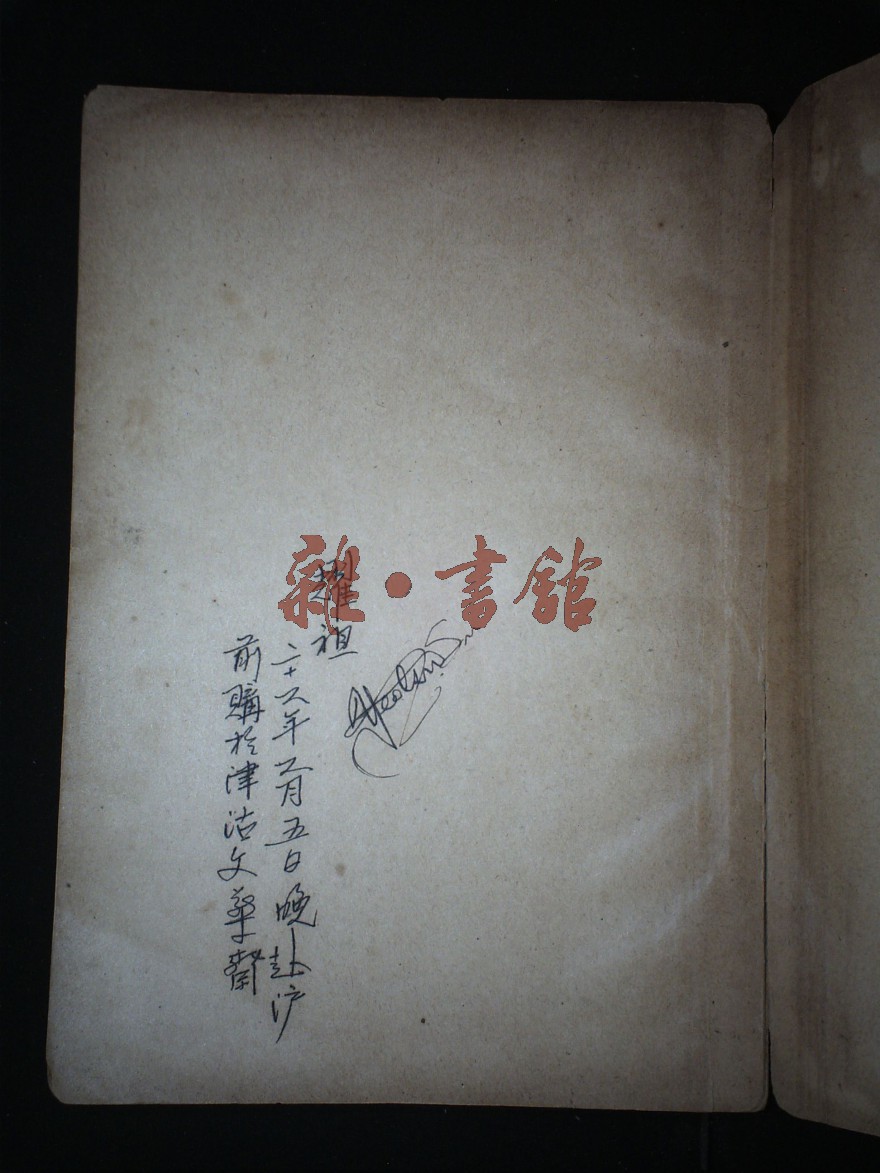 雜·書館
耀祖
二十六年六月五日晚赴沪
前購於津沽文華齋